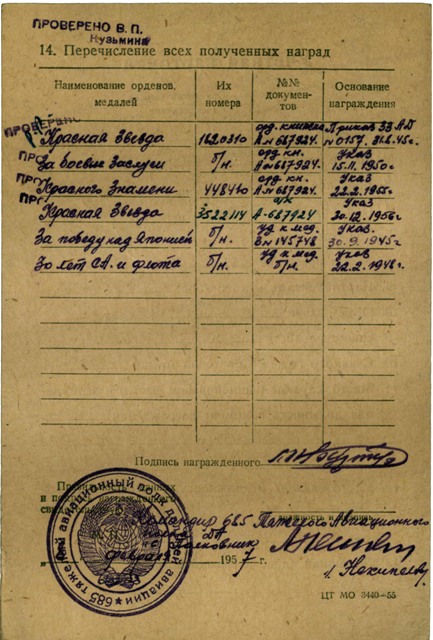 ПРОВЕРЕНО В. П.
Кузьмина
14. Перечисление всех полученных наград
Наименование орденов, медалей Их номера №№ документов Основание награждения
ПРОВЕРЕНО
Красная Звезда 1620310 орд. книжка А № 687924. Приказ 33 АД № 0157. 31.8.45г.
ПРО
За боевые заслуги б/н. орд. кн. А № 687924. Указ 15.11.1950г
ПРО
Красного Знамени 448410 орд. кн. А № 687924 Указ 22.2.1955г
ПРО
Красная Звезда 3522114 о/к А-687924 Указ 30.12.1956г
За победу над Японией б/н. уд. к мед. В № 145748 Указ. 30.9.1945г
30 лет СА. и флота б/н. уд к мед. б/н. Указ 22.2.1948г.
Подпись награжденного
и подпись награжденного
Командир 685 Тяжелого Авиационного
полка ДА
полковник
февраля 1957 г.
Некипелов
685 тяжелый авиационный полк дальней авиации
ЦТ МО 3440—55